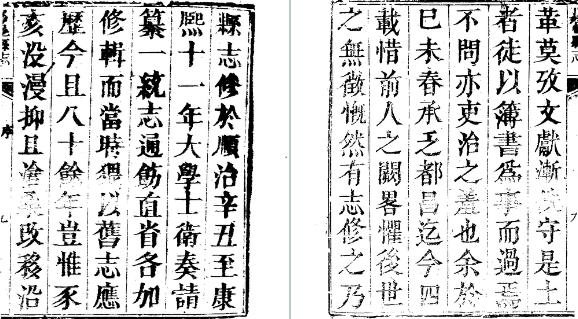 縣志修於順治辛丑至康
熙十一年大學士衛奏請
纂一統志通飭直省各加
修輯而當時僅以舊志應
歷今且八十餘年豈惟豕
亥没漫抑且滄桑攺移沿
序
革莫攷文獻漸守是土
者徒以簿書爲事而過焉
不問亦吏治之羞也余於
巳未春承乏都昌迄今四
載惜前人之闕畧懼後世
之無徵慨然有志修之乃